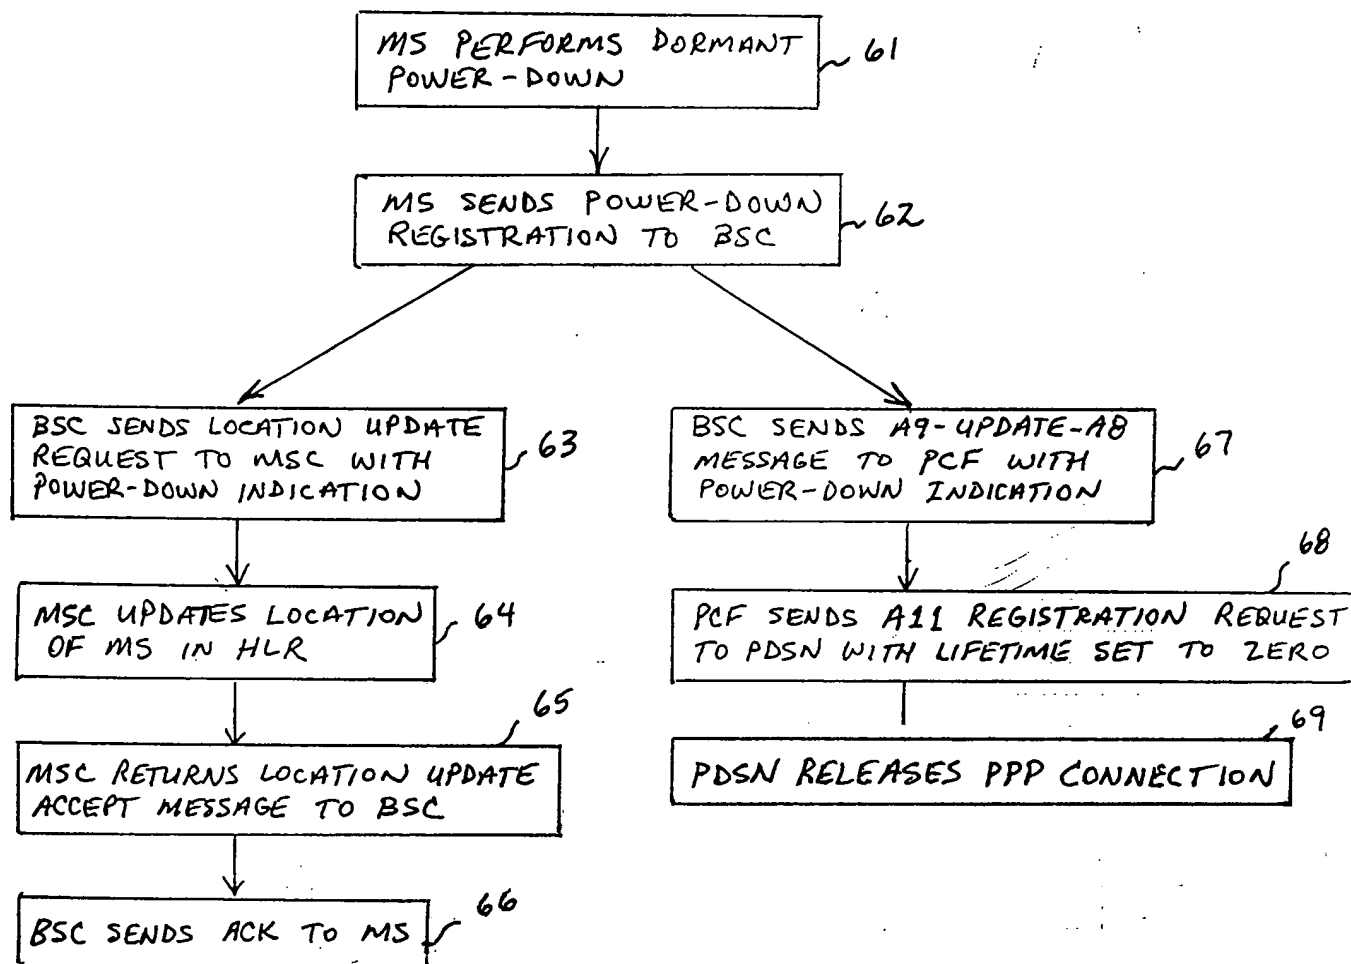 MS PERFORMS DORMANT
POWER-DOWN
61
MS SENDS POWER-DOWN
REGISTRATION TO BSC
62
BSC SENDS LOCATION UPDATE
REQUEST TO MSC WITH
POWER-DOWN INDICATION
63
MSC UPDATES LOCATION
OF MS IN HLR
64
65
MSC RETURNS LOCATION UPDATE
ACCEPT MESSAGE TO BSC
BSC SENDS ACK TO MS
66
BSC SENDS A9-UPDATE-A8
MESSAGE TO PCF WITH
POWER-DOWN INDICATION
67
68
PCF SENDS A11 REGISTRATION REQUEST
TO PDSN WITH LIFETIME SET TO ZERO
69
PDSN RELEASES PPP CONNECTION